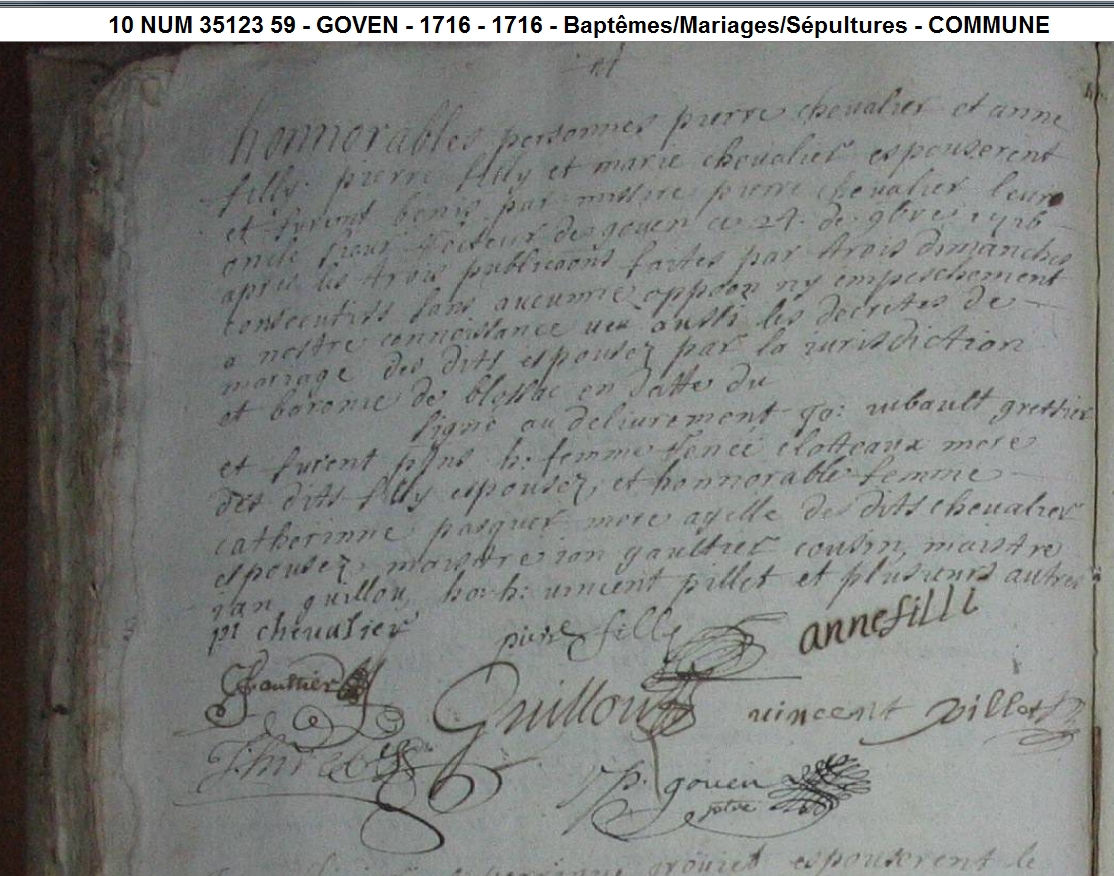 10 NUM 35123 59 - GOVEN - 1716 - 1716 - Baptêmes/Mariages/Sépultures - COMMUNE
honnorables personnes pierre chevalier et anne
filly. pierre filly et marie chevalier espouserent
et furent benis par missire pierre chevalier leur
oncle recteur de goven ce 24. de 9bre 1716
apres les trois publicaons faittes par trois dimanches
consecutifs sans aucunne oppoon ny empeschement
a nostre connoissance veu aussi les decretes de
mariage des dits espousez par la jurisdiction
et baronie de blossac en datte du
signé au delivrement greffier
et furent pnts h: femme mere
des dits filly espousez, et honnorable femme
catherinne pasquer mere ayelle des dits chevalier
espousez, maistre jan gaultier cousin, maistre
jan guillou, hoh: vincent pillet et plusieurs autres
pr chevalier pierre filly anne filli
Gaultier Guillou vincent pillet
p. goven
espouserent le